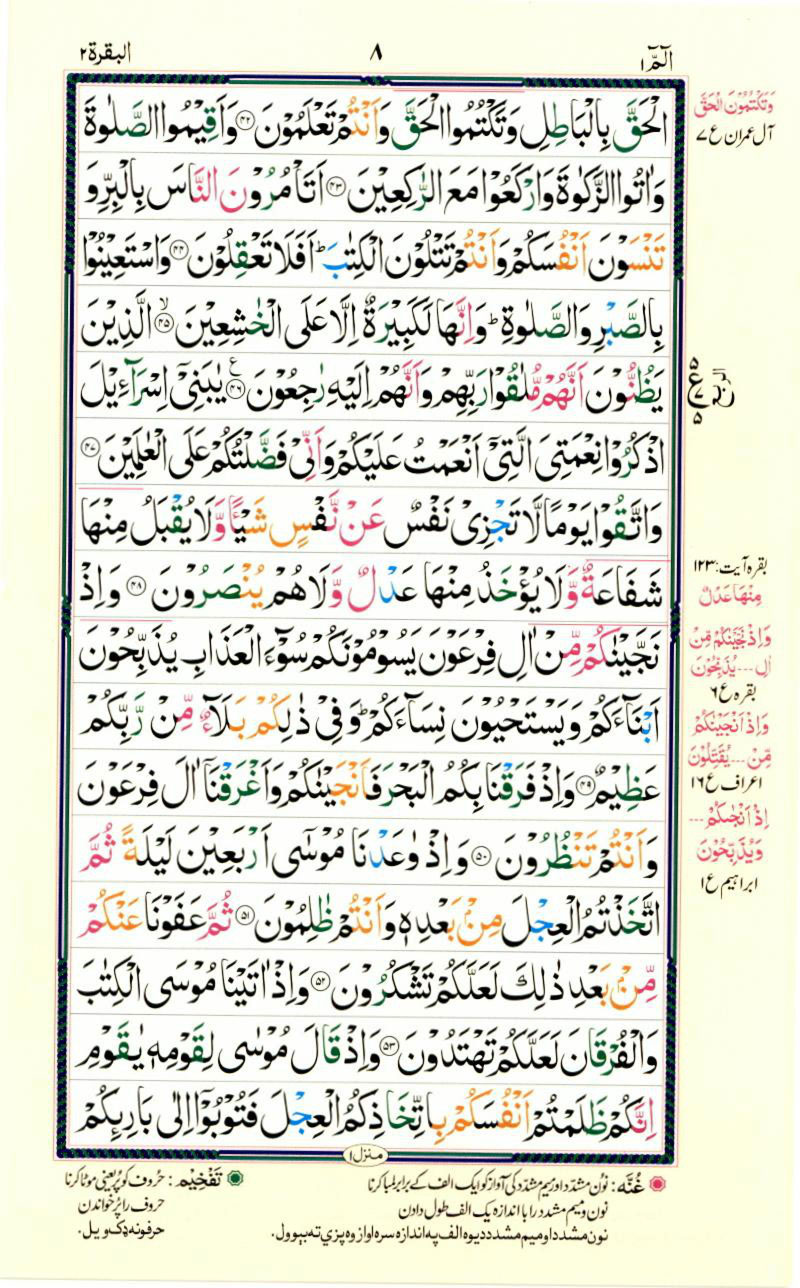 الٓمّٓ ١
٨
البقرة ٢
الْحَقَّ بِالْبَاطِلِ وَتَكْتُمُوا الْحَقَّ وَاَنْتُمْ تَعْلَمُوْنَ ﴿۴۲﴾ وَاَقِيْمُوا الصَّلٰوةَ
وَاٰتُوا الزَّكٰوةَ وَارْكَعُوْا مَعَ الرّٰكِعِيْنَ ﴿۴۳﴾ اَتَاْمُرُوْنَ النَّاسَ بِالْبِرِّ وَ
تَنْسَوْنَ اَنْفُسَكُمْ وَاَنْتُمْ تَتْلُوْنَ الْكِتٰبَ ؕ اَفَلَا تَعْقِلُوْنَ ﴿۴۴﴾ وَاسْتَعِيْنُوْا
بِالصَّبْرِ وَالصَّلٰوةِ ؕ وَاِنَّهَا لَكَبِيْرَةٌ اِلَّا عَلَى الْخٰشِعِيْنَ ﴿۴۵﴾ۙ الَّذِيْنَ
يَظُنُّوْنَ اَنَّهُمْ مُّلٰقُوْا رَبِّهِمْ وَاَنَّهُمْ اِلَيْهِ رٰجِعُوْنَ ﴿۴۶﴾ ع يٰبَنِيْٓ اِسْرَآءِيْلَ
اذْكُرُوْا نِعْمَتِيَ الَّتِيْٓ اَنْعَمْتُ عَلَيْكُمْ وَاَنِّيْ فَضَّلْتُكُمْ عَلَى الْعٰلَمِيْنَ ﴿۴۷﴾
وَاتَّقُوْا يَوْمًا لَّا تَجْزِيْ نَفْسٌ عَنْ نَّفْسٍ شَيْـًٔا وَّلَا يُقْبَلُ مِنْهَا
شَفَاعَةٌ وَّلَا يُؤْخَذُ مِنْهَا عَدْلٌ وَّلَا هُمْ يُنْصَرُوْنَ ﴿۴۸﴾ وَاِذْ
نَجَّيْنٰكُمْ مِّنْ اٰلِ فِرْعَوْنَ يَسُوْمُوْنَكُمْ سُوْٓءَ الْعَذَابِ يُذَبِّحُوْنَ
اَبْنَآءَكُمْ وَيَسْتَحْيُوْنَ نِسَآءَكُمْ ؕ وَفِيْ ذٰلِكُمْ بَلَآءٌ مِّنْ رَّبِّكُمْ
عَظِيْمٌ ﴿۴۹﴾ وَاِذْ فَرَقْنَا بِكُمُ الْبَحْرَ فَاَنْجَيْنٰكُمْ وَاَغْرَقْنَآ اٰلَ فِرْعَوْنَ
وَاَنْتُمْ تَنْظُرُوْنَ ﴿۵۰﴾ وَاِذْ وٰعَدْنَا مُوْسٰٓى اَرْبَعِيْنَ لَيْلَةً ثُمَّ
اتَّخَذْتُمُ الْعِجْلَ مِنْۢ بَعْدِهٖ وَاَنْتُمْ ظٰلِمُوْنَ ﴿۵۱﴾ ثُمَّ عَفَوْنَا عَنْكُمْ
مِّنْۢ بَعْدِ ذٰلِكَ لَعَلَّكُمْ تَشْكُرُوْنَ ﴿۵۲﴾ وَاِذْ اٰتَيْنَا مُوْسَى الْكِتٰبَ
وَالْفُرْقَانَ لَعَلَّكُمْ تَهْتَدُوْنَ ﴿۵۳﴾ وَاِذْ قَالَ مُوْسٰى لِقَوْمِهٖ يٰقَوْمِ
اِنَّكُمْ ظَلَمْتُمْ اَنْفُسَكُمْ بِاتِّخَاذِكُمُ الْعِجْلَ فَتُوْبُوْٓا اِلٰى بَارِئِكُمْ
منزل ١
وَتَكْتُمُوْنَ الْحَقَّ
آل عمران ع ٧
الربع
۵ ع ۷ ۵
بقره آیت: ۱۲۳
مِنْهَا عَدْلٌ
وَاِذْ نَجَّيْنٰكُمْ مِّنْ
اٰلِ ... يُذَبِّحُوْنَ
بقره ع ٦
وَاِذْ اَنْجَيْنٰكُمْ
مِّنْ ... يُقَتِّلُوْنَ
اعراف ع ١٦
اِذْ اَنْجٰىكُمْ ...
وَيُذَبِّحُوْنَ
ابراہیم ع ١
غُنَّه: نون مشدد اور میم مشدد کی آواز کو ایک الف کے برابر لمبا کرنا
نون و میم مشدد را با اندازه یک الف طول دادن
نون مشدد او میم مشدد دیوه الف په اندازه سره اواز وه پزي ته بېوول.
تَفْخِيْم: حُروف کو پُر یعنی موٹا کرنا
حروف را پُر خواندن
حرفونه ډک ویل.